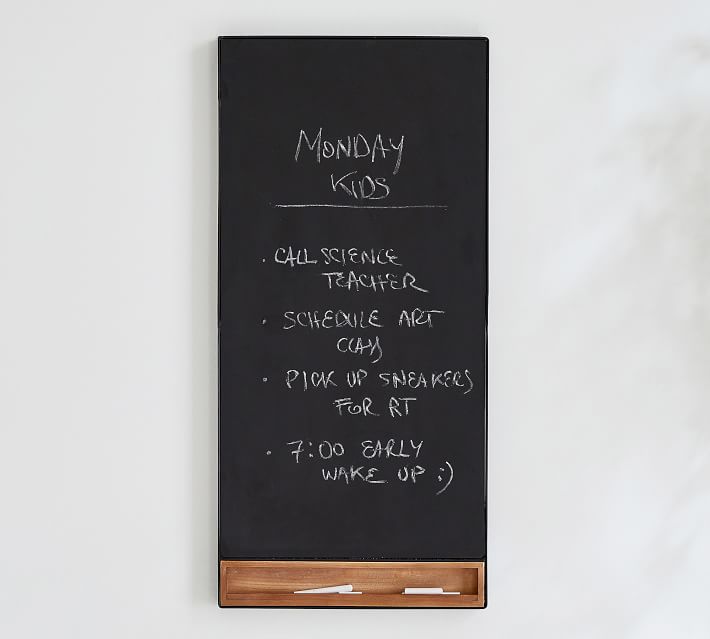 MONDAY
KIDS
. CALL SCIENCE
TEACHER
. SCHEDULE ART
CLAY
. PICK UP SNEAKERS
FOR RT
. 7:00 EARLY
WAKE UP :)